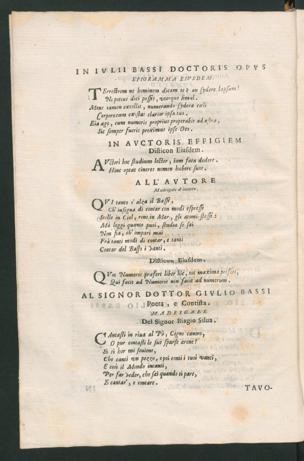 IN IVLII BASSI DOCTORIS OPVS
EPIGRAMMA EIUSDEM.
TErrestrem ne hominem dicam te an sydere lapsum!
Ne poteris dici posses, uterque simul.
Mens tamen excellit, numerando sydera cœli
Corporeum existas clarior ipse tuo.
Eia ago, cum numeris proprius properabis ad astra,
Sic semper fueris proximus ipse Deo.
IN AVCTORIS EFFIGIEM
Disticon Eiusdem.
AVctori hoc studium lector, bona fata dedere.
Hunc optat cineres nomen habere suos.
ALL' AVTORE
Madrigale d'incerto.
QVì tanto s'alza il Bassi,
Ch'insegna di contar con modi espressi
Stelle in Ciel, rene in Mar, gli atomi stessi:
Mà leggi quanto puoi, studia se sai
Non fia, ch'impari mai
Frà tanti modi di contar, e tanti
Contar del Bassi i Vanti.
Disticon Eiusdem.
QVot Numeris præferi liber hic, tot maxima posset,
Qui facit ad Numeros non facit ad numerum.
AL SIGNOR DOTTOR GIVLIO BASSI
Poeta, e Contista.
MADRIGALE
Del Signor Biagio Silua.
CAntasti in riua al Pò, Cigno canoro,
O pur contasti le sue sparse arene?
Sì ti ber mi souiene,
Che canti un pezzo, e poi conti i tuoi vanti,
E così il Mondo incanti,
Per far veder, che sai quando ti pare,
E cantar, e contare.
TAVO-